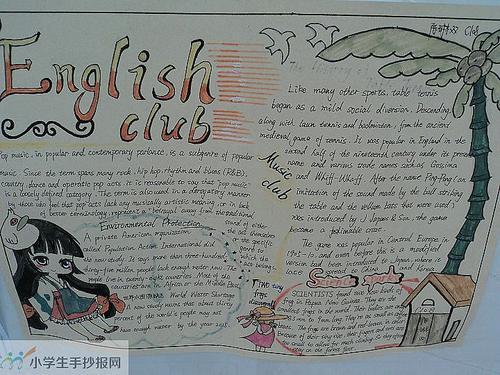 English
club
Pop music, in popular and contemporary parlance, is a subgenre of popular
music. Since the term spans many rock, hip hop, rhythm and blues (R&B),
country, dance and operatic pop acts, it is reasonable to say that "pop music"
is a loosely defined category. The term is also used in a derogatory manner
by those who feel that pop acts lack any musically artistic meaning, or in lack
of better terminology, represent a betrayal away from
Environmental Protection
A private American organization
called Population Action International did
the new study. It says more than three-hundred-
thirty-five million people lack enough water now. The
people live in twenty-eight countries. Most of the
countries are in Africa or the Middle East
World Water Shortage
A new study warns that about thirty
percent of the world's people may not
have enough water by the year 2025.
Music
club
Like many other sports, table tennis
began as a mild social diversion. Descending,
along with lawn tennis and badminton, from the ancient
medieval game of tennis. It was popular in England in the
second half of the nineteenth century under its present
name and various trade names such as Gossima
and Whiff-Whaff. After the name Ping-Pong (an
imitation of the sound made by the ball striking
the table and the vellum bats that were used)
was introduced by J Jaques & Son, the game
became a fashionable craze.
The game was popular in Central Europe in
1905-10, and even before this a modified
version had been introduced to Japan, where it
spread to China and Korea.
Tiny frogs
Science Sports
SCIENTISTS found two new kinds of
frog in Papua New Guinea. They are the
smallest frogs in the world.
小学生手抄报网